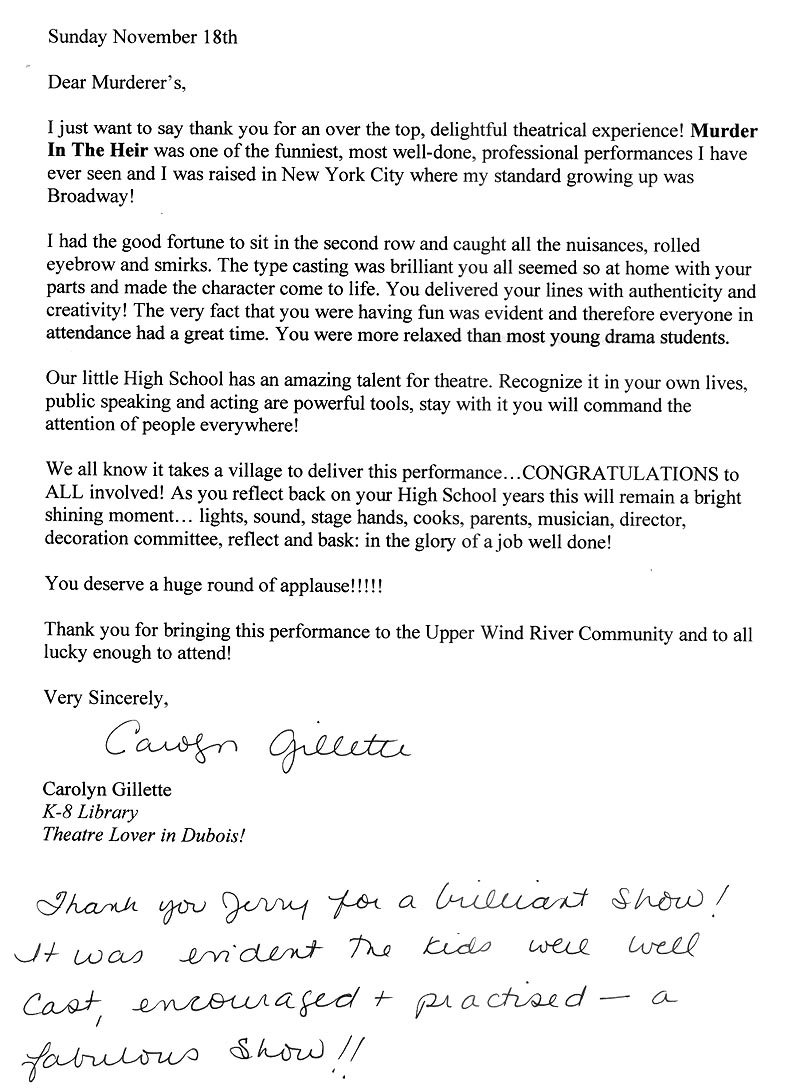 Sunday November 18th
Dear Murderer's,
I just want to say thank you for an over the top, delightful theatrical experience! Murder
In The Heir was one of the funniest, most well-done, professional performances I have
ever seen and I was raised in New York City where my standard growing up was
Broadway!
I had the good fortune to sit in the second row and caught all the nuisances, rolled
eyebrow and smirks. The type casting was brilliant you all seemed so at home with your
parts and made the character come to life. You delivered your lines with authenticity and
creativity! The very fact that you were having fun was evident and therefore everyone in
attendance had a great time. You were more relaxed than most young drama students.
Our little High School has an amazing talent for theatre. Recognize it in your own lives,
public speaking and acting are powerful tools, stay with it you will command the
attention of people everywhere!
We all know it takes a village to deliver this performance…CONGRATULATIONS to
ALL involved! As you reflect back on your High School years this will remain a bright
shining moment… lights, sound, stage hands, cooks, parents, musician, director,
decoration committee, reflect and bask: in the glory of a job well done!
You deserve a huge round of applause!!!!!
Thank you for bringing this performance to the Upper Wind River Community and to all
lucky enough to attend!
Very Sincerely,
Carolyn Gillette
Carolyn Gillette
K-8 Library
Theatre Lover in Dubois!
Thank you Jerry for a brilliant show!
It was evident the kids were well
cast, encouraged + practised — a
fabulous show!!